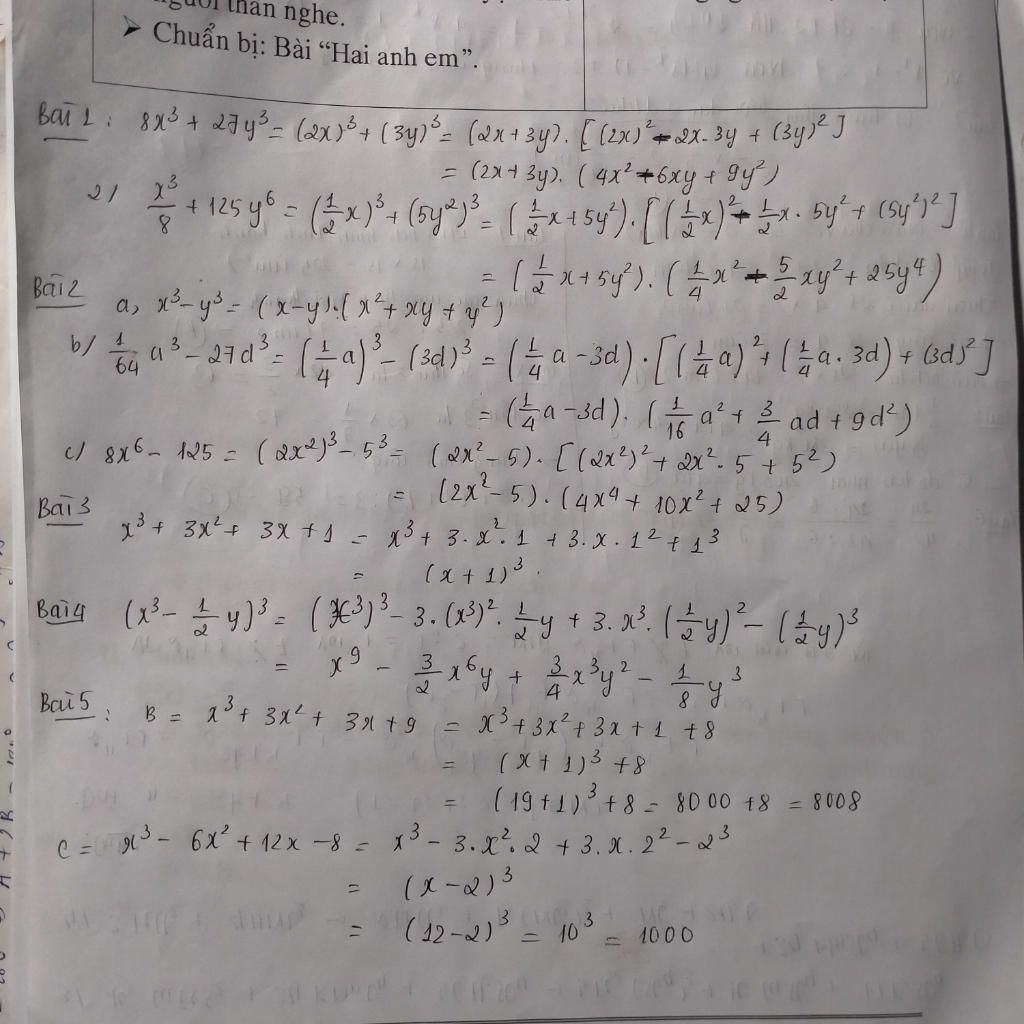 người thân nghe.
➤ Chuẩn bị: Bài “Hai anh em”.
Bài 1 : 8x³ + 27y³ = (2x)³ + (3y)³ = (2x + 3y). [(2x)² - 2x.3y + (3y)²]
= (2x + 3y). (4x² - 6xy + 9y²)
2/ x³/8 + 125y⁶ = (1/2 x)³ + (5y²)³ = (1/2 x + 5y²).[(1/2 x)² - 1/2 x. 5y² + (5y²)²]
= (1/2 x + 5y²). (1/4 x² - 5/2 xy² + 25y⁴)
Bài 2
a, x³ - y³ = (x - y).(x² + xy + y²)
b/ 1/64 a³ - 27d³ = (1/4 a)³ - (3d)³ = (1/4 a - 3d) . [(1/4 a)² + (1/4 a. 3d) + (3d)²]
= (1/4 a - 3d). (1/16 a² + 3/4 ad + 9d²)
c/ 8x⁶ - 125 = (2x²)³ - 5³ = (2x² - 5). [(2x²)² + 2x². 5 + 5²)
= (2x² - 5). (4x⁴ + 10x² + 25)
Bài 3
x³ + 3x² + 3x + 1 = x³ + 3.x².1 + 3.x.1² + 1³
= (x + 1)³.
Bài 4 (x³ - 1/2 y)³ = (x³)³ - 3.(x³)². 1/2 y + 3.x³.(1/2 y)² - (1/2 y)³
= x⁹ - 3/2 x⁶y + 3/4 x³y² - 1/8 y³
Bài 5 : B = x³ + 3x² + 3x + 9 = x³ + 3x² + 3x + 1 + 8
= (x + 1)³ + 8
= (19 + 1)³ + 8 = 8000 + 8 = 8008
C = x³ - 6x² + 12x - 8 = x³ - 3.x².2 + 3.x.2² - 2³
= (x - 2)³
= (12 - 2)³ = 10³ = 1000